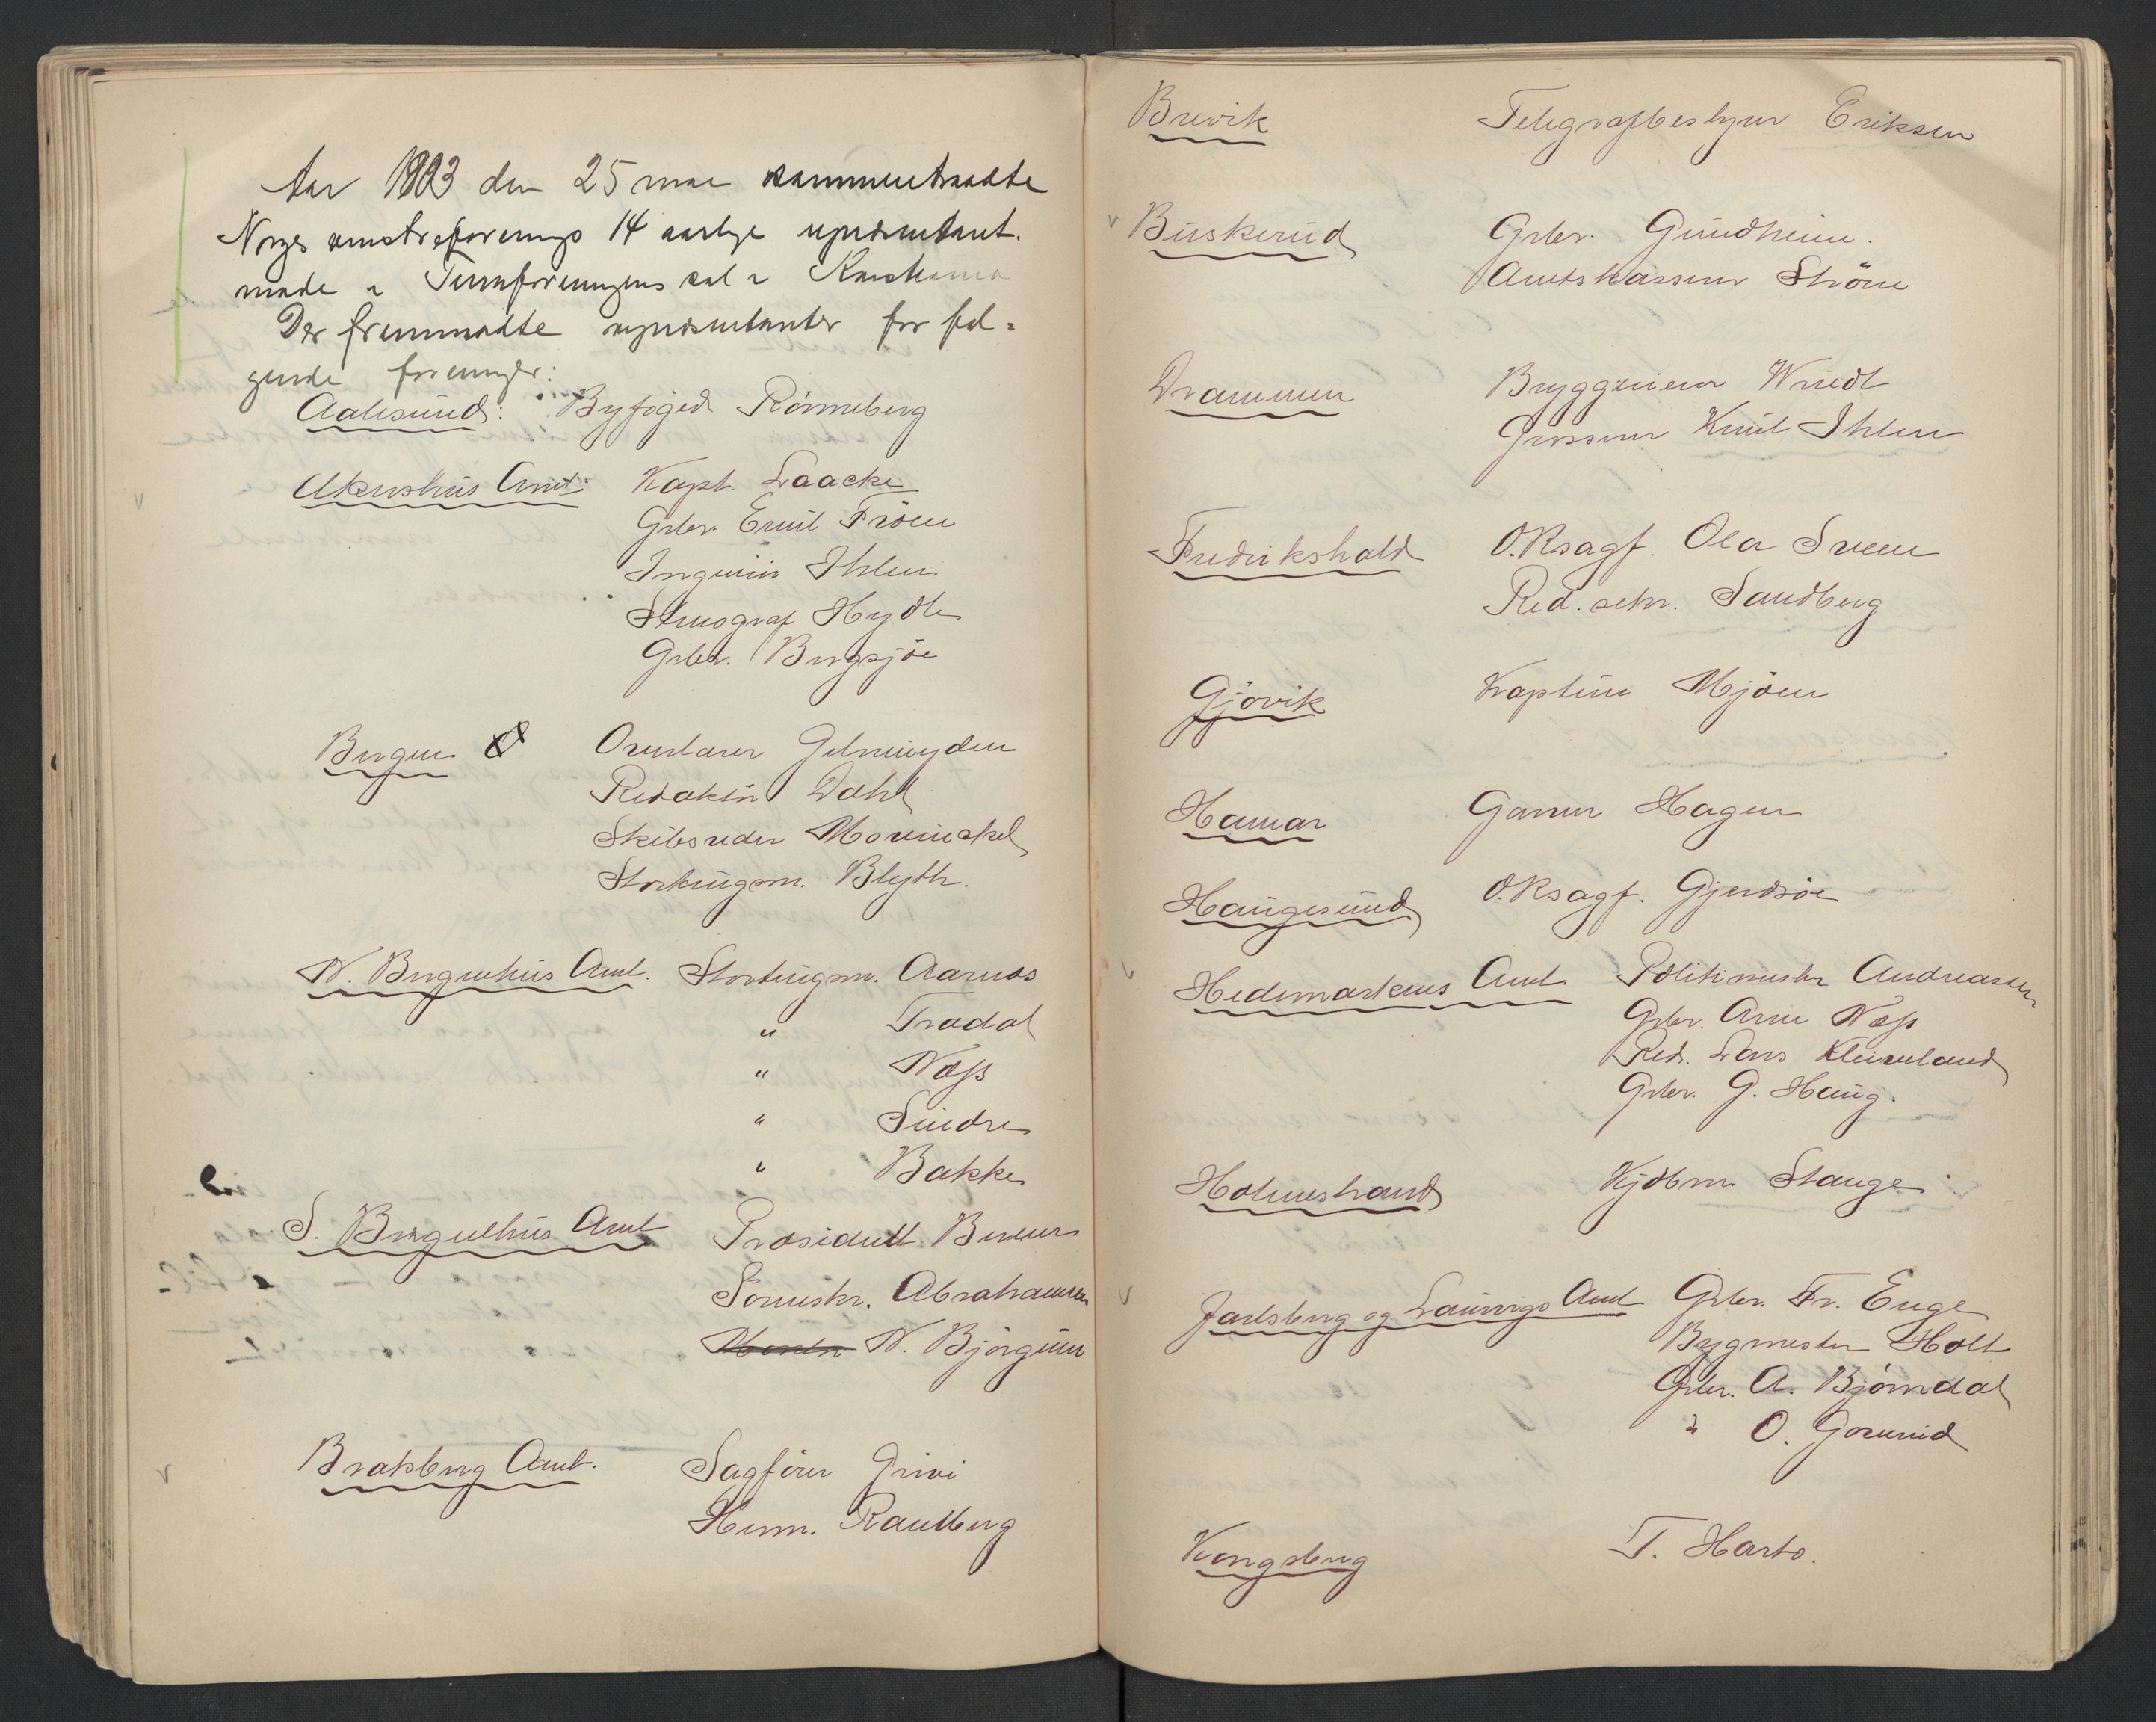 Aar 1903 den 25 mai sammentraadte
Norges venstreforenings 14 aarlige repræsentant.
møde i Turnforeningens sal i Kristiania
Der fremmødte repræsentanter for føl-
gende foreninger:
Aalesund: Byfoged Rønneberg
Akershus Amt: Kapt. Laacke
Grbr. Emil Frøen
Ingeniør Ihlen
Stenograf Hydle
Grbr. Bergsjøe
Bergen Overlærer Gelmuyden
Redaktør Dahl
Skibsreder Mowinckel
Stortingsm. Blydt.
N. Bergenhus Amt. Stortingsm. Aarnæs
" Tradal
" Næss
" Sindre
" Bakke
S. Bergenhus Amt Præsident Berner
Sorenskr. Abrahamsen
N. Bjørgum
Bratsberg Amt. Sagfører Grivi
Herm. Rautberg
Brevik Telegrafbestyrer Eriksen
Buskerud Grbr. Gundheim.
Amtskasserer Strøm
Drammen Bryggerieier Wriedt
Grosserer Emil Ihlen
Fredrikshald O.Rsagf. Ola Sveen
Red. sekr. Sandberg
Gjøvik Kaptein Mjøen
Hamar Garver Hagen
Haugesund O.Rsagf. Gjerdsøe
Hedemarkens Amt Politimester Andreassen
Grbr. Arne Næss
Red. Lars Kleiveland
Grbr. G. Haug.
Holmestrand Kjøbm. Stange
Jarlsberg og Laurvigs Amt Grbr. Fr. Enge
Bygmester Holt
Grbr. A. Bjørndal
" O. Gorerud
Kongsberg T. Harto.